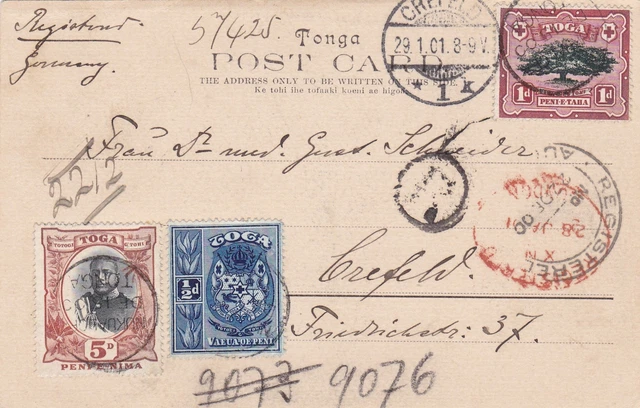 Registered.
Germany.
57425
Tonga
POST CARD.
THE ADDRESS ONLY TO BE WRITTEN ON THIS SIDE.
Ke tohi ihe tofaaki koeni ae higoa
CREFELD
29.1.01.8-9V.
* 1 k
TOGA
1d 1d
PENI-E-TAHA
Frau Dr med. Gust. Schneider
22/2
REGISTERED
28 JA
Crefeld.
Friedrichstr. 37.
TOGA
5D
PENI E NIMA
TONGA
TOGA
½d
VALUA'OE PENI
9077 9076